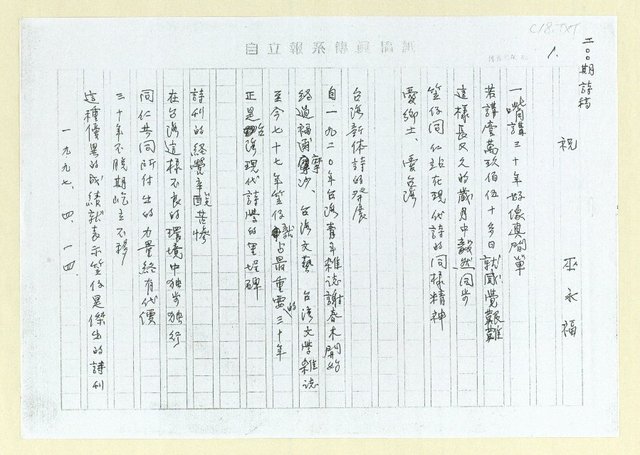 C18.TXT
自立報系聯副專用
二〇〇期詩稿
1.
祝
巫永福
一嘴講三十年好像真簡單
若講壹萬玖佰伍十多日就感覺艱難
這樣長久的歲月中毅然同步
笠仔同仁站在現代詩的同樣精神
愛鄉土、愛台灣
台灣新体詩的發展
自一九二〇年台灣青年雜誌謝春木開始
經過福爾摩沙、台灣文藝 台灣文學雜誌
至今七十七年笠仔就占最重要的三十年
正是台灣現代詩學的里程碑
詩刊的經營辛酸苦慘
在台灣這樣不良的環境中独步独行
同仁共同所付出的力量終有代價
三十年不脫期屹立不搖
這種優異的成績就表示笠仔是傑出的詩刊
一九九七、四、一四、